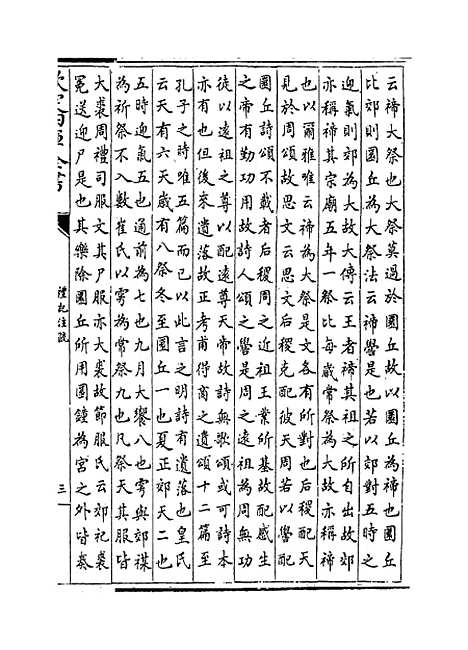 云禘大祭也大祭莫過於圜丘故以圜丘為禘也圜丘
比郊則圜丘為大祭法云禘嚳是也若以郊對五時之
迎氣則郊為大故大傳云王者禘其祖之所自出故郊
亦稱禘其宗廟五年一祭比每歲常祭為大故亦稱禘
也以爾雅唯云禘為大祭是文各有所對也后稷配天
見於周頌故思文云思文后稷克配彼天周若以嚳配
圜丘詩頌不載者后稷周之近祖王業所基故配感生
之帝有勤功用故詩人頌之嚳是周之遠祖為周無功
徒以遠祖之尊以配遠尊天帝故詩無歌頌或可詩本
亦有也但後來遺落故正考甫得商之遺頌十二篇至
孔子之時唯五篇而已以此言之明詩有遺落也皇氏
云天有六天歲有八祭冬至圜丘一也夏正郊天二也
五時迎氣五也通前為七也九月大饗八也雩與郊禖
為祈祭不入數崔氏以雩為常祭九也凡祭天其服皆
大裘周禮司服文其尸服亦大裘故節服氏云郊祀裘
冕送迎尸是也其樂除圜丘所用圜鍾為宮之外皆奏
欽定四庫全書
禮記注疏
三